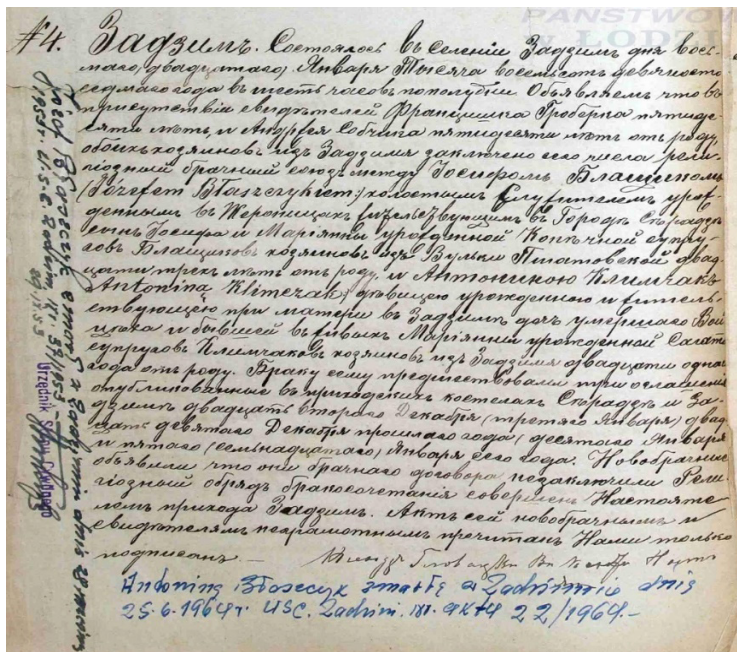 PAŃSTWOWE
W ŁODZI
№4.
Задзимъ. Состоялось въ селеніи Задзимъ дня вось-
маго/двадцатаго Января Тысяча восемьсотъ девяносто
седмаго года въ шесть часовъ пополудни. Объявляемъ что въ
присутствіи свидѣтелей Францишка Гроберка пятиде-
сяти лѣтъ, и Андрея Собчика пятидесяти лѣтъ отъ роду,
обоихъ хозяиновъ изъ Задзима заключено сего числа рели-
гіозный брачный союзъ между Іосифомъ Блащикомъ
(Józefem Błaszczykiem) холостымъ служителемъ урож-
деннымъ въ Жероницахъ жительствующимъ въ Городѣ Сѣрадзѣ
сынъ Іосифа и Маріянны урожденной супру-
говъ Блащиковъ хозяиновъ изъ Вульки двад-
цати трехъ лѣтъ отъ роду, и Антониною Климчакъ
(Antonina Klimczak) дѣвицею урожденною и житель-
ствующею при матери въ Задзимѣ дочь умершаго Вой-
цѣха и бывшей въ живыхъ Маріянны урожденной
супруговъ Климчаковъ хозяиновъ изъ Задзима двадцати одного
года отъ роду. Браку сему предшествовали три оглашенія
опубликованные въ приходскихъ костелахъ Сѣрадзѣ и За-
дзимѣ двадцать втораго Декабря (третяго Января) двад-
цать девятаго Декабря прошлаго года (десятаго Января)
и пятаго (семьнадцатаго) Января сего года. Новобрачные
объявили что они брачнаго договора незаключили. Рели-
гіозный обрядъ бракосочетанія совершенъ Настояте-
лемъ прихода Задзимъ. Актъ сей новобрачнымъ и
свидѣтелямъ неграмотнымъ прочитанъ Нами только
подписанъ. —
Antonina Błaszczyk zmarła w Zadzimiu dnia
25.6.1964r. USC. Zadzim. nr. aktu 22/1964.-
Józef Błaszczyk zmarł w Zadzimiu dnia 28
1953r. U.S.C. Zadzim Nr. 37/1953 -
Urzędnik Stanu Cywilnego